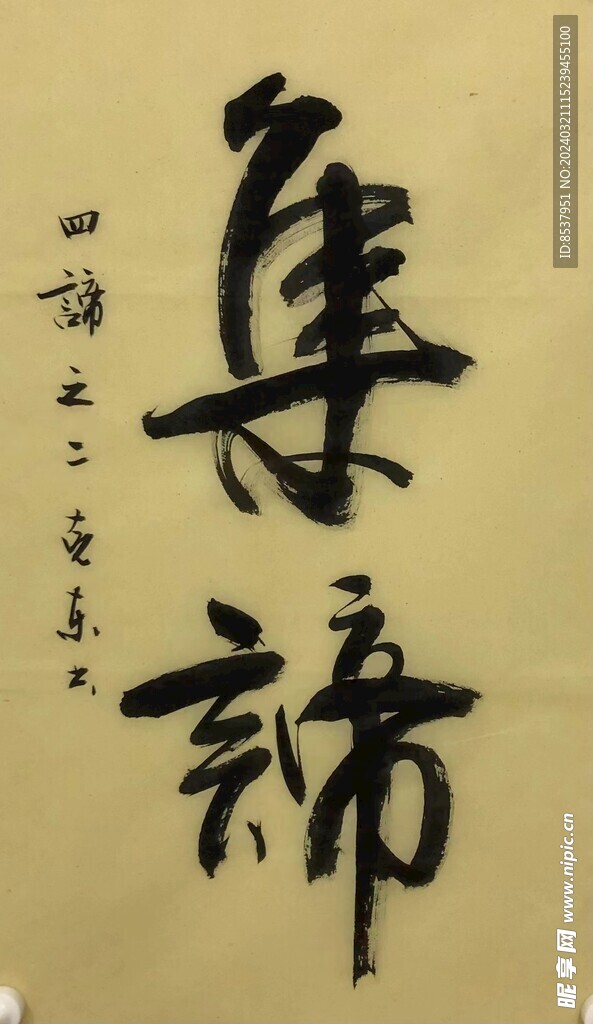 集諦
四諦之二 克东书
ID:8537951 NO:20240321115239455100
昵享网 www.nipic.cn